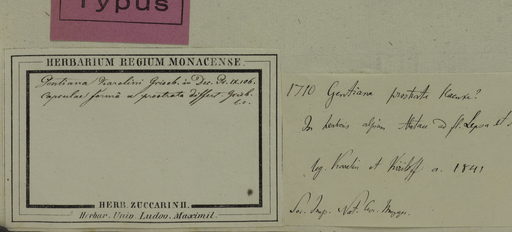 Typus
HERBARIUM REGIUM MONACENSE
Gentiana Karelini Griseb. in Dec. Pr. IX.106.
Capsulae forma a prostrata differt Griseb.
l.c.
HERB. ZUCCARINII.
Herbar. Univ. Ludov. Maximil.
1710 Gentiana prostrata Haenke?
In herbosis alpium Alatau ad fl. Lepsa et
leg. Karelin et Kiriloff a. 1841
Soc. Imp. Nat. Cur. Mosq.